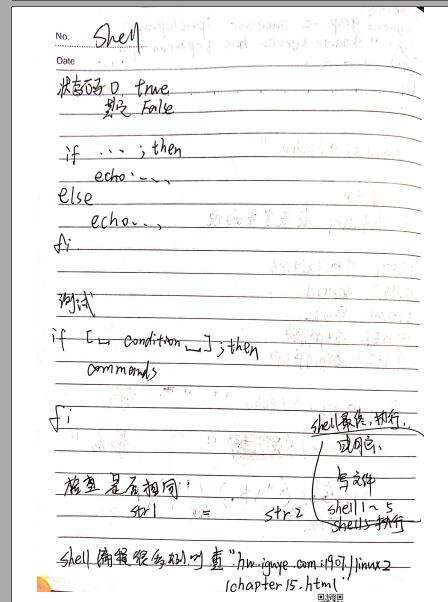 No. Shell
Date
状态码 0 true
其它 False
if ... ; then
echo ...
else
echo ...
fi
测试
if [ ␣ condition ␣ ] ; then
commands
fi
shell 最终. 执行.
写文件
shell 1 ~ 5
shell 5 执行
检查 是否相同:
str1 = str2
shell 编程很多
/chapter15.html